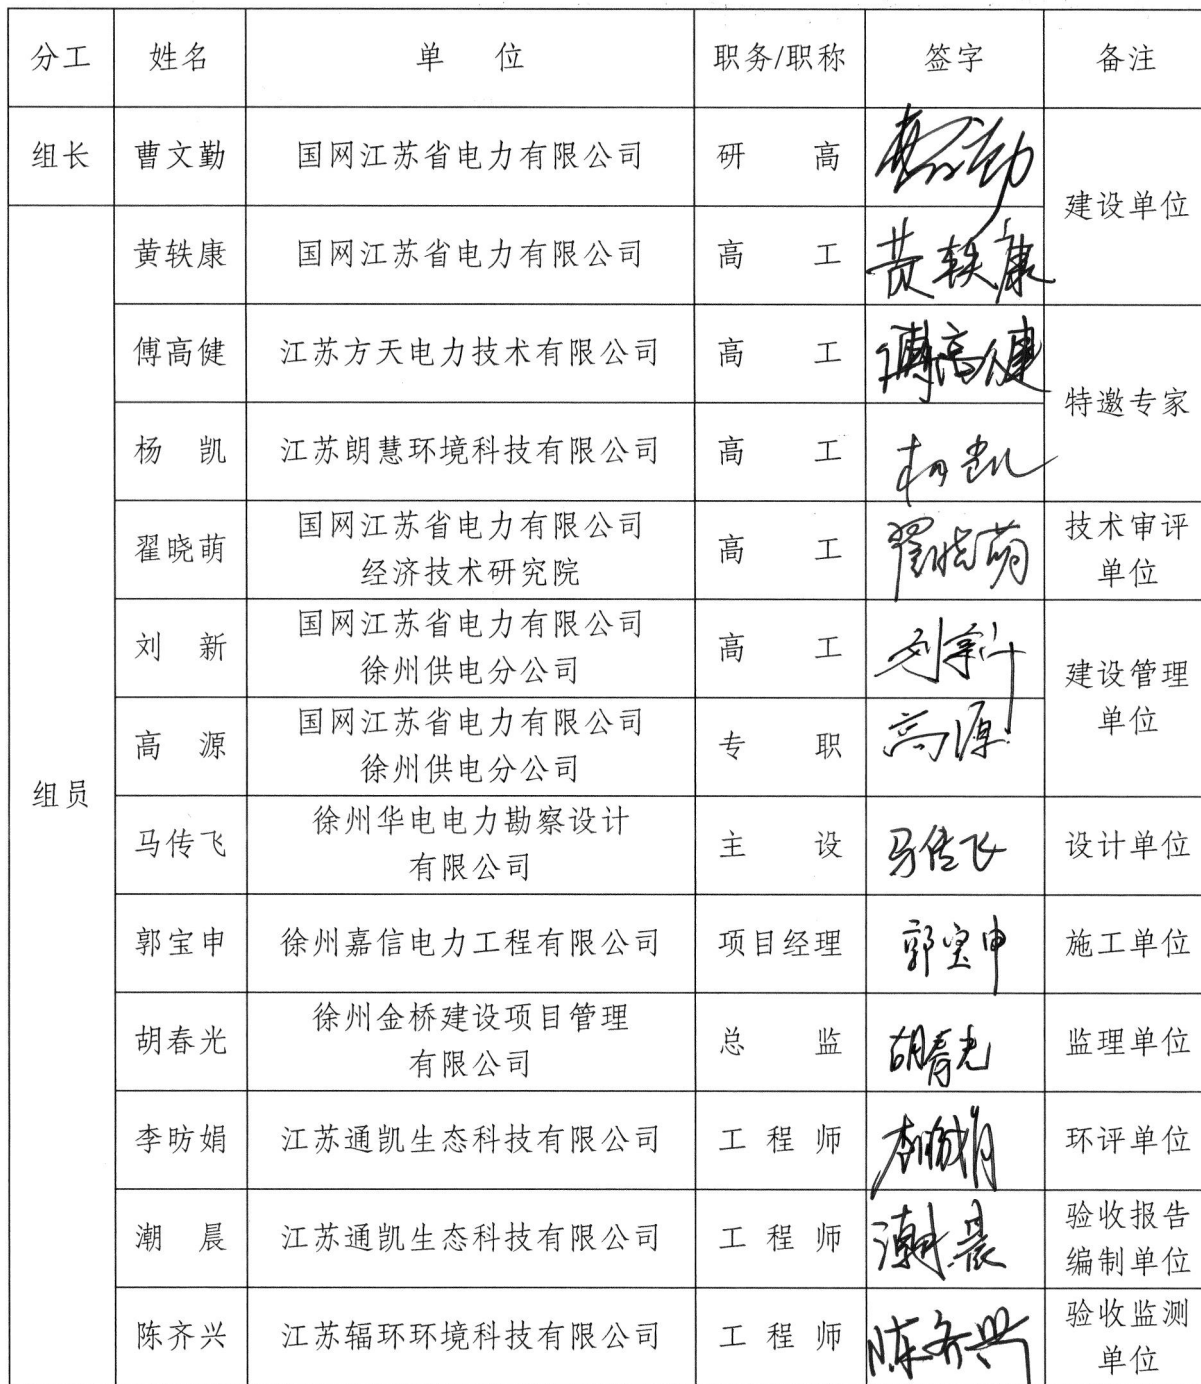 分工 姓名 单 位 职务/职称 签字 备注
组长 曹文勤 国网江苏省电力有限公司 研 高
建设单位
黄轶康 国网江苏省电力有限公司 高 工 黄轶康
傅高健 江苏方天电力技术有限公司 高 工 傅高健
特邀专家
杨 凯 江苏朗慧环境科技有限公司 高 工 杨凯
翟晓萌 国网江苏省电力有限公司 经济技术研究院 高 工 翟晓萌 技术审评 单位
刘 新 国网江苏省电力有限公司 徐州供电分公司 高 工 刘新
建设管理 单位
高 源 国网江苏省电力有限公司 徐州供电分公司 专 职 高源
组员
马传飞 徐州华电电力勘察设计 有限公司 主 设 马传飞 设计单位
郭宝申 徐州嘉信电力工程有限公司 项目经理 郭宝申 施工单位
胡春光 徐州金桥建设项目管理 有限公司 总 监 胡春光 监理单位
李昉娟 江苏通凯生态科技有限公司 工 程 师 环评单位
潮 晨 江苏通凯生态科技有限公司 工 程 师 潮晨 验收报告 编制单位
陈齐兴 江苏辐环环境科技有限公司 工 程 师 陈齐兴 验收监测 单位